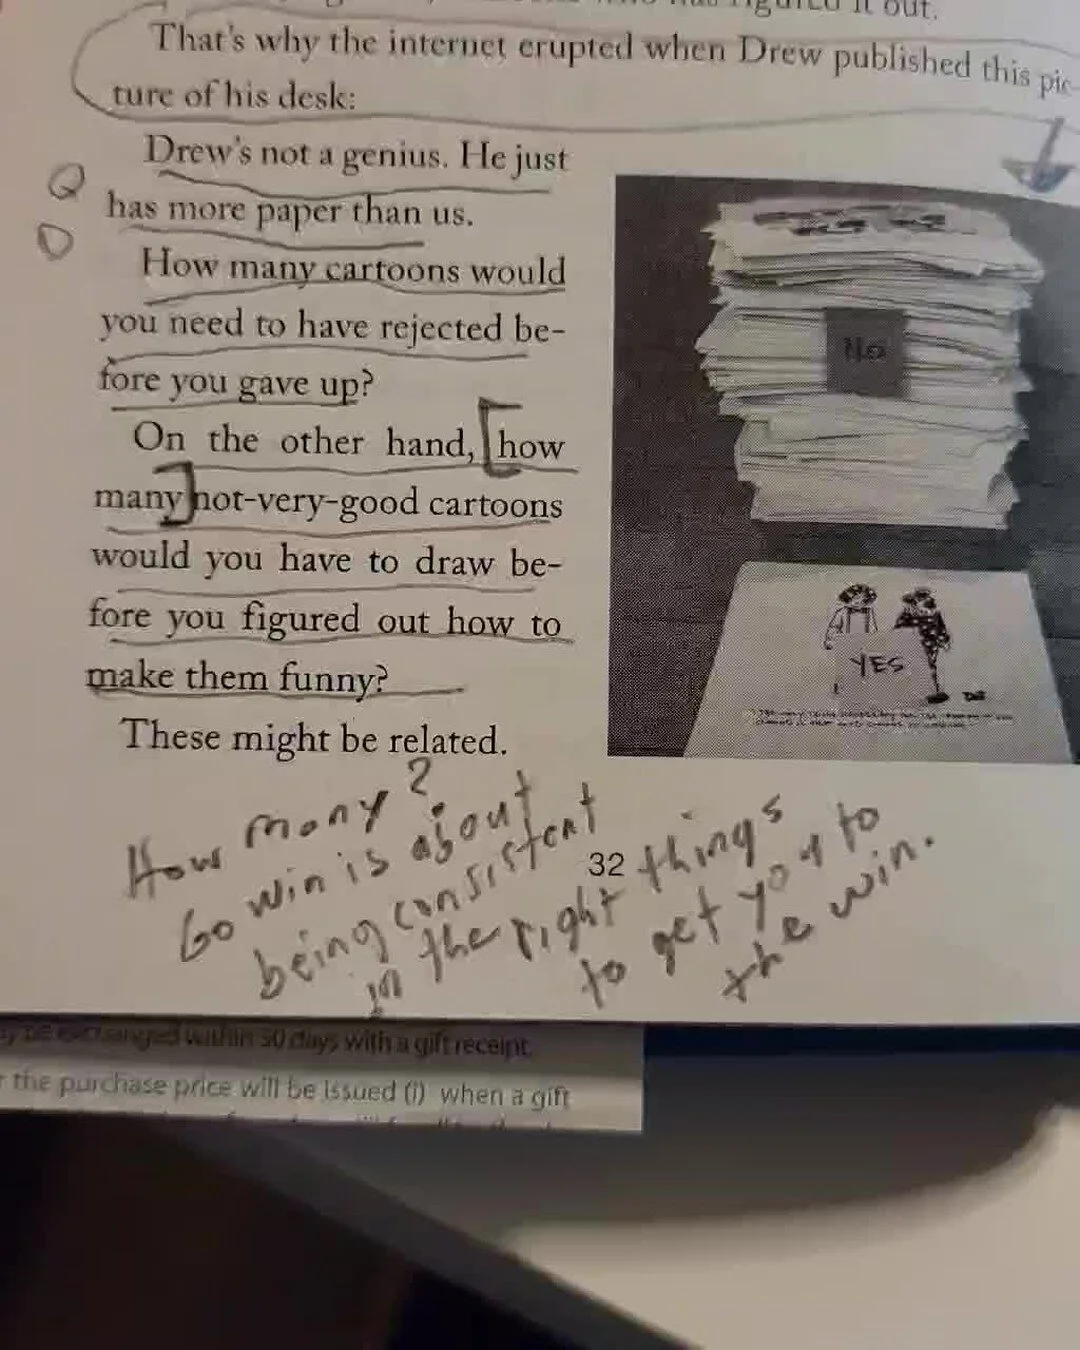 it out.
That's why the internet erupted when Drew published this pic-
ture of his desk:
Drew's not a genius. He just
has more paper than us.
How many cartoons would
you need to have rejected be-
fore you gave up?
On the other hand, how
many not-very-good cartoons
would you have to draw be-
fore you figured out how to
make them funny?
These might be related.
No
YES
How many?
Go win is about
being consistent
in the right things
to get you to
the win.
32
exchanged within 30 days with a gift receipt.
the purchase price will be issued (i) when a gift